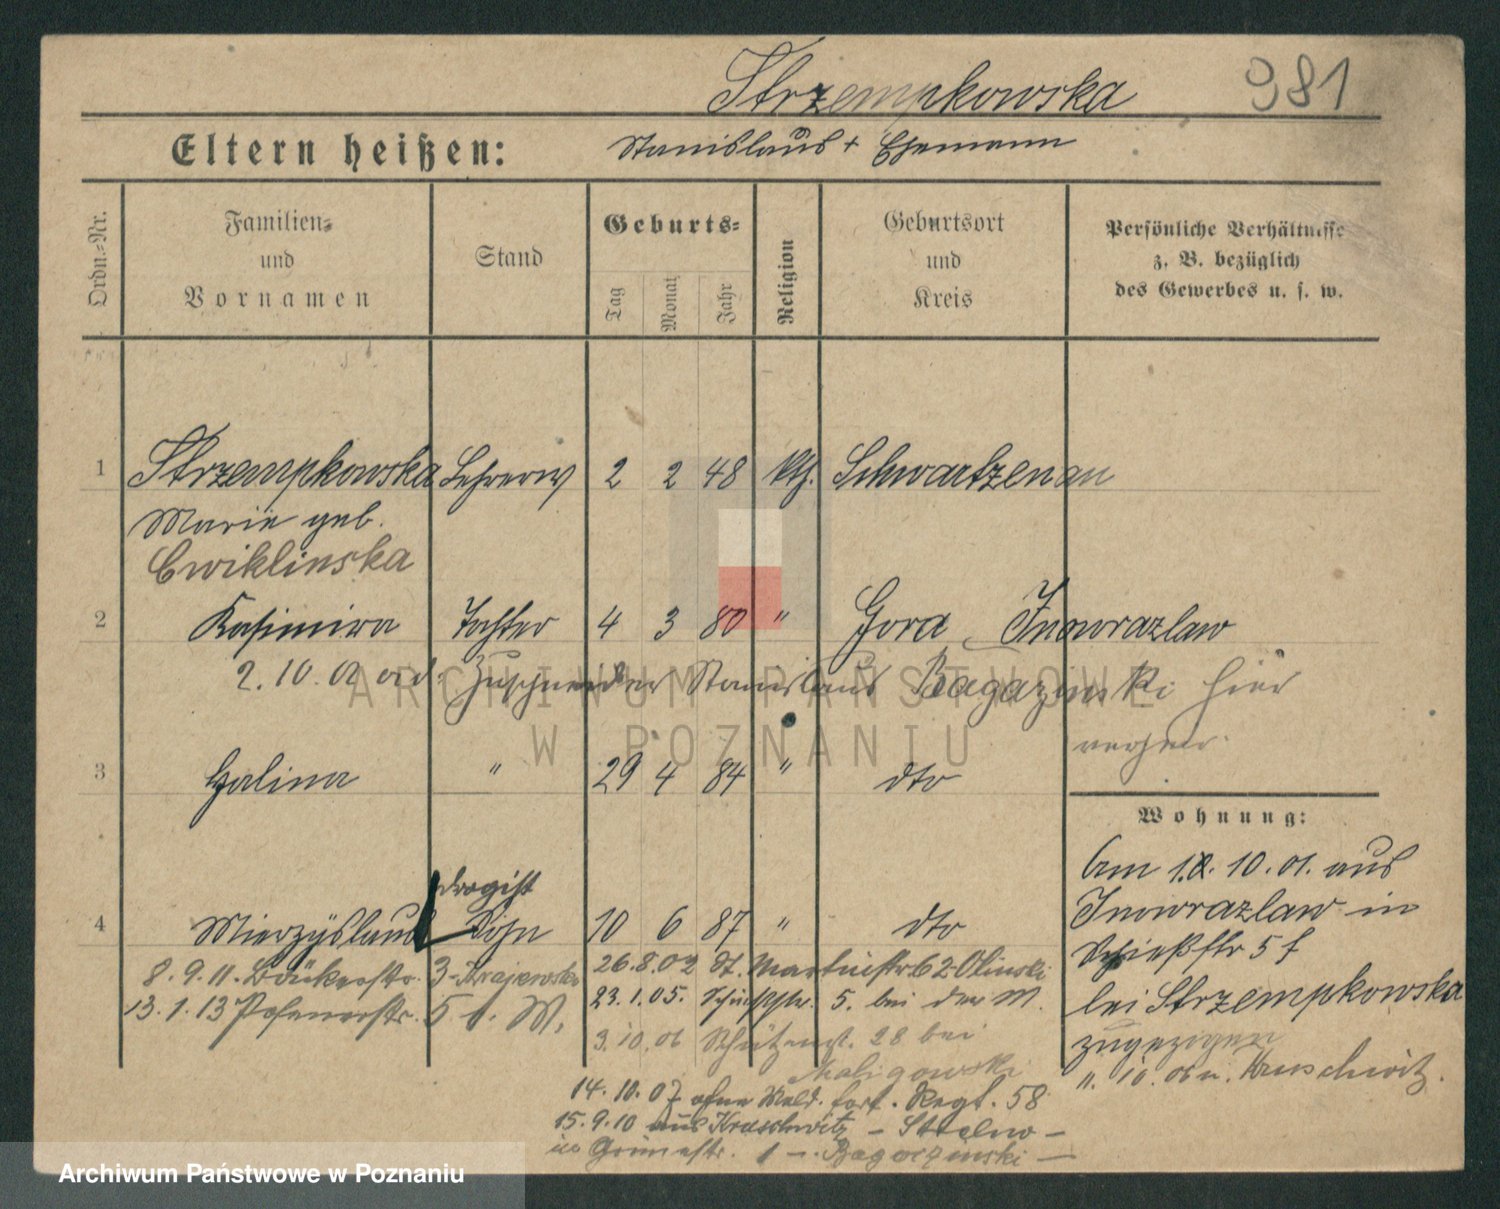 Strzempkowska 981
Eltern heißen: Stanislaus + Ehemann
Ordn.=Nr.
Familien=
und
Vornamen
Stand
Geburts=
Tag
Monat
Jahr
Religion
Geburtsort
und
Kreis
Persönliche Verhältnisse
z. B. bezüglich
des Gewerbes u. s. w.
1 Strzempkowska Lehrerw 2 2 48 kth. Schwartzenau
Marie geb.
Cwiklinska
2 Kasimira Tochter 4 3 80 " Gora Inowrazlaw
2.10.01 Zuschneider Stanislaus Bagazinski hier
3 Halina " 29 4 84 " dto
4 Mierzyslaus Drogist
Sohn 10 6 87 " dto
8.9.11. Bäckerstr. 3 - Krajewska
13.1.13 Posenerstr. 5 b. M.
26.8.02 St. Martinstr 62 Olinski
23.1.05. Schießstr. 5. bei der M.
3.10.06 Schützenst. 28 bei
Maligowski
14.10.07 ohne Meld. fort. Regt. 58
15.9.10 aus Kruschwitz - Strelno -
in Grünestr. 1 -
Wohnung:
Am 1.10.01. aus
Inowrazlaw in
Schießstr 5 f
bei Strzempkowska
zugezogen
10.06 n. Kruschwitz.
ARCHIWUM PAŃSTWOWE
W POZNANIU
Archiwum Państwowe w Poznaniu